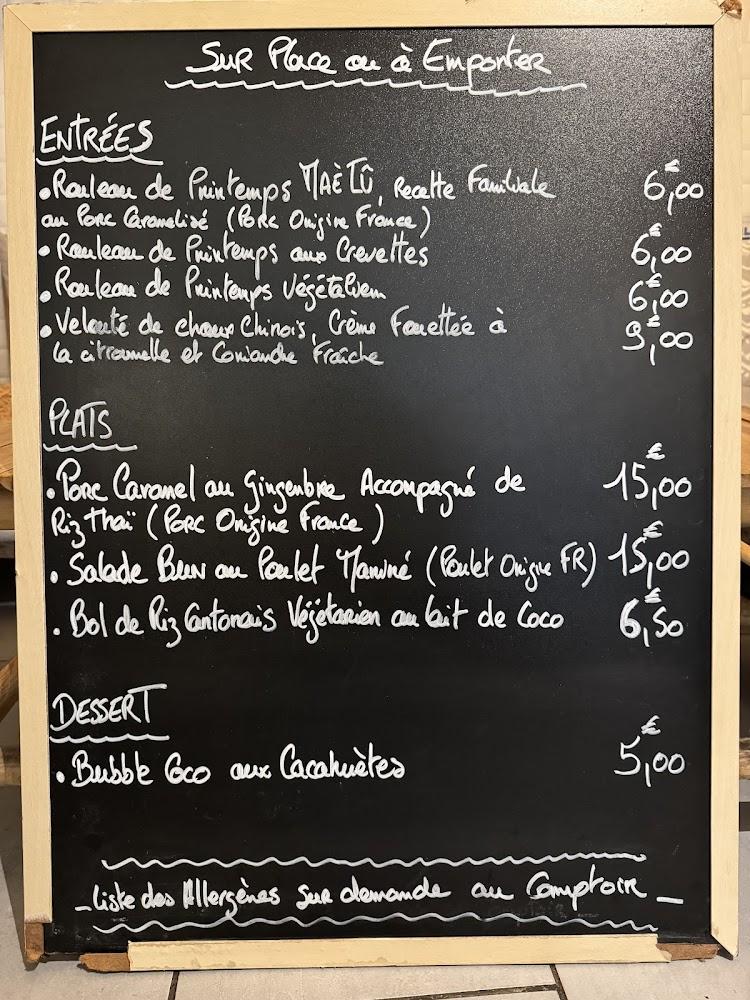 Sur Place ou à Emporter
ENTRÉES
• Rouleau de Printemps MAÈ TÛ, Recette Familiale 6,00 €
au Porc Caramelisé (Porc Origine France)
• Rouleau de Printemps aux Crevettes 6,00 €
• Rouleau de Printemps Végétalien 6,00 €
• Velouté de choux Chinois, Crème Fouettée à 9,00 €
la citronnelle et Coriandre Fraîche
PLATS
• Porc Caramel au Gingenbre Accompagné de 15,00 €
Riz Thaï (Porc Origine France)
• Salade Bun au Poulet Mariné (Poulet Origine FR) 15,00 €
• Bol de Riz Cantonais Végétarien au lait de Coco 6,50 €
DESSERT
• Bubble Coco aux Cacahuètes 5,00 €
- Liste des Allergènes sur demande au Comptoir -